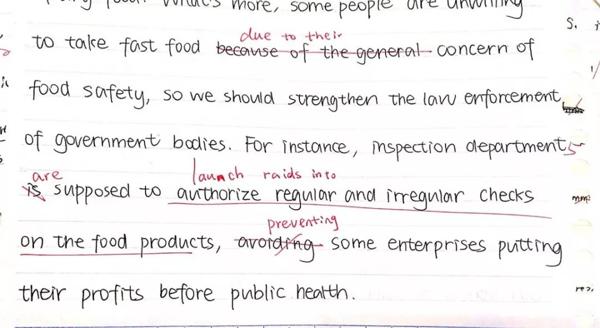 food. What's more, some people are unwilling
due to their
to take fast food because of the general concern of
food safety, so we should strengthen the law enforcement
of government bodies. For instance, inspection departments
are launch raids into
is supposed to authorize regular and irregular checks
preventing
on the food products, avoiding some enterprises putting
their profits before public health.